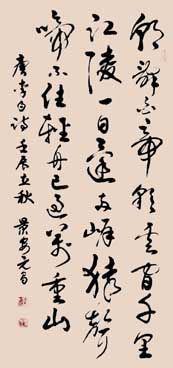 朝辭白帝彩雲間千里
江陵一日還兩岸猿聲
啼不住輕舟已過萬重山
唐李白詩 壬辰立秋